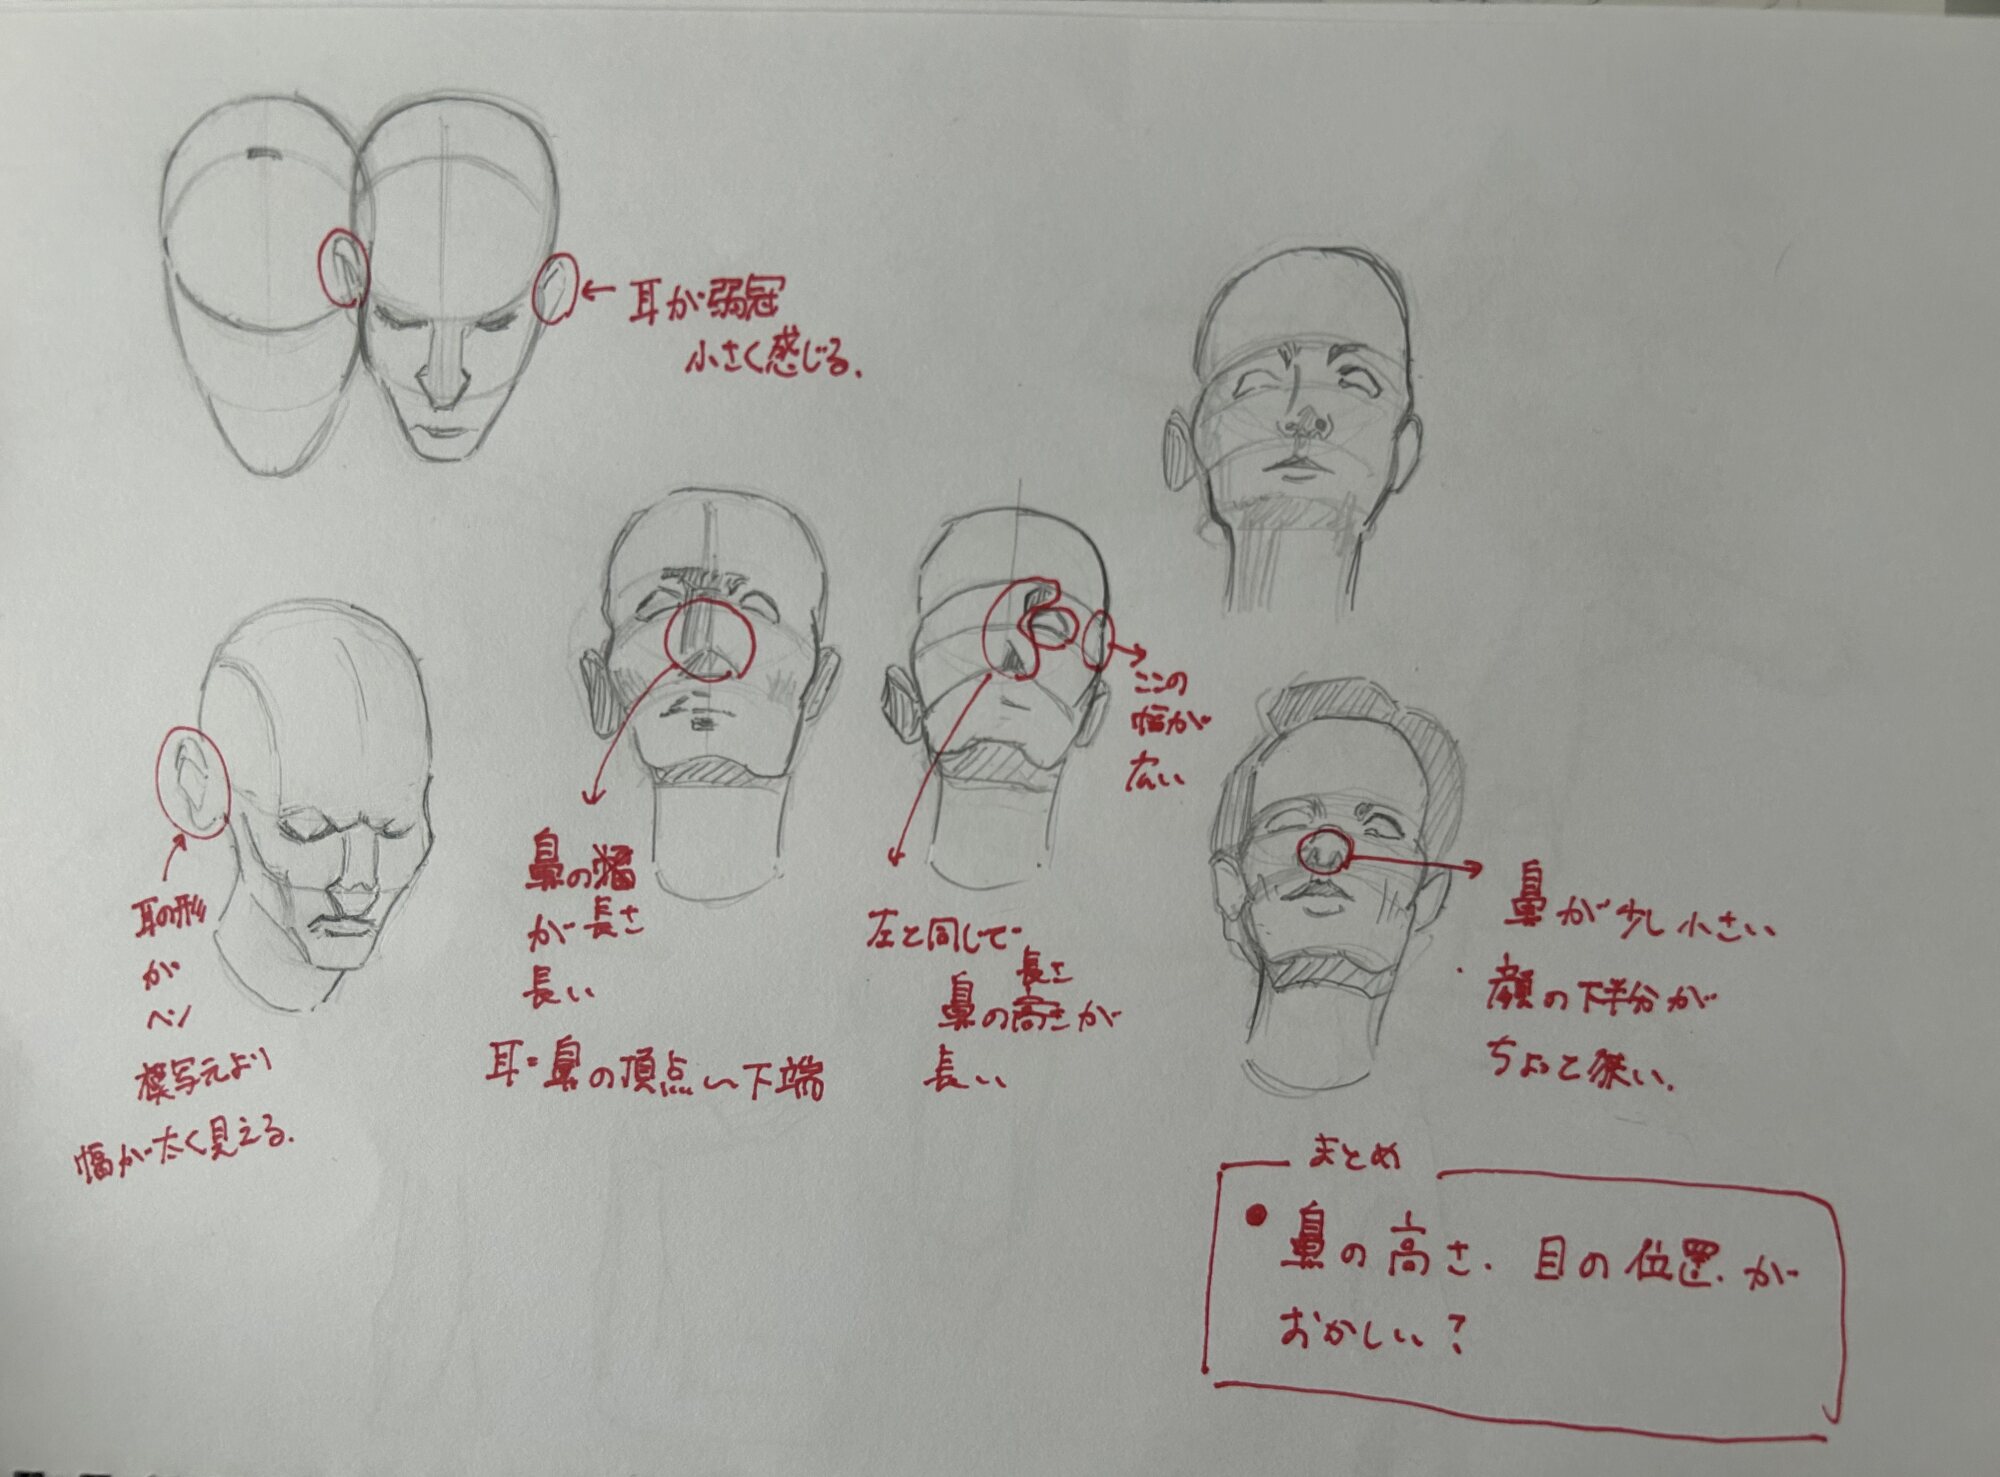 耳が弱冠
小さく感じる.
ここの
幅が
広い
耳の形
が
ヘン
模写元より
幅が太く見える.
鼻の幅
が長さ
長い
耳=鼻の頂点〜下端
左と同じで
長さ
鼻の高さが
長い
鼻が少し小さい
顔の下半分が
ちょっと狭い.
まとめ
● 鼻の高さ. 目の位置.が
おかしい?